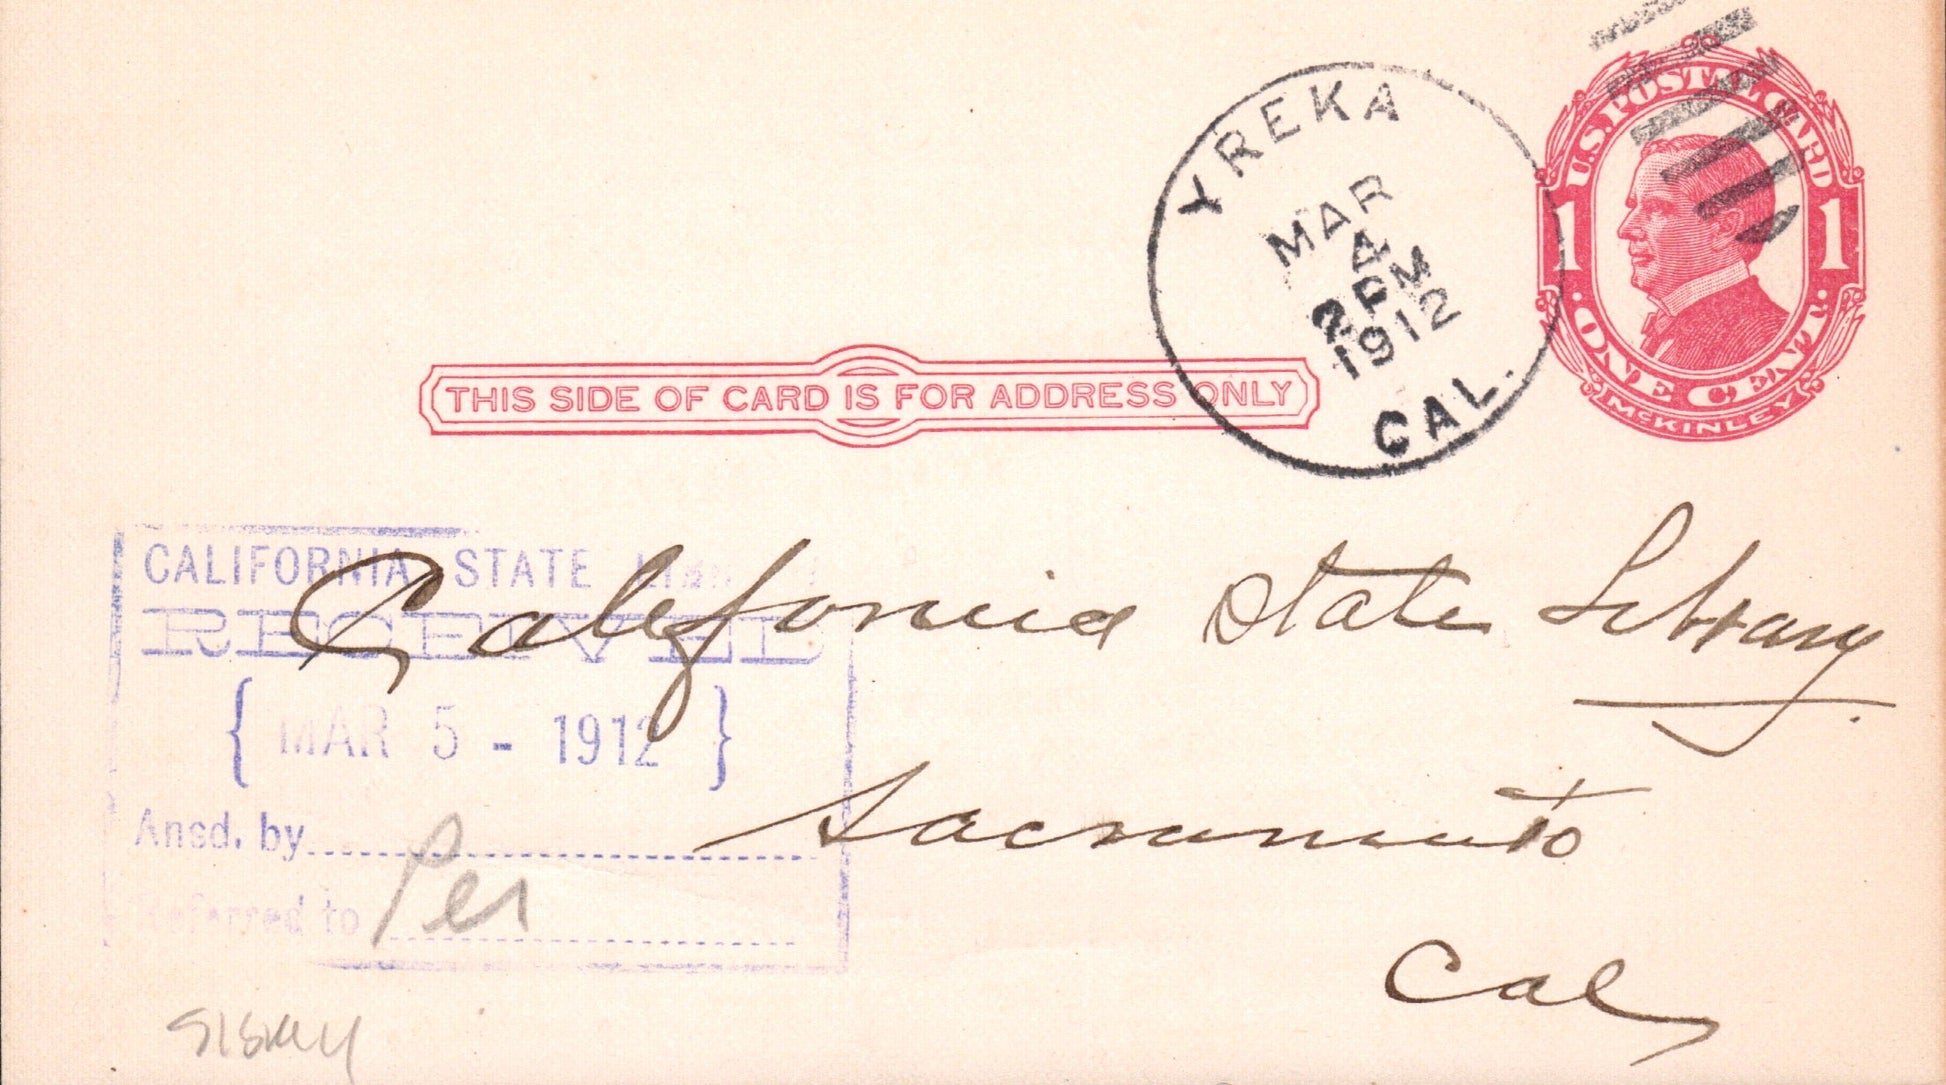 YREKA
MAR
4
2 PM
1912
CAL.
U.S. POSTAL CARD
1 1
· ONE CENT ·
McKINLEY
THIS SIDE OF CARD IS FOR ADDRESS ONLY
CALIFORNIA STATE
RECEIVED
{ MAR 5 - 1912 }
Ansd. by
Referred to
California State Library
Sacramento
Cal